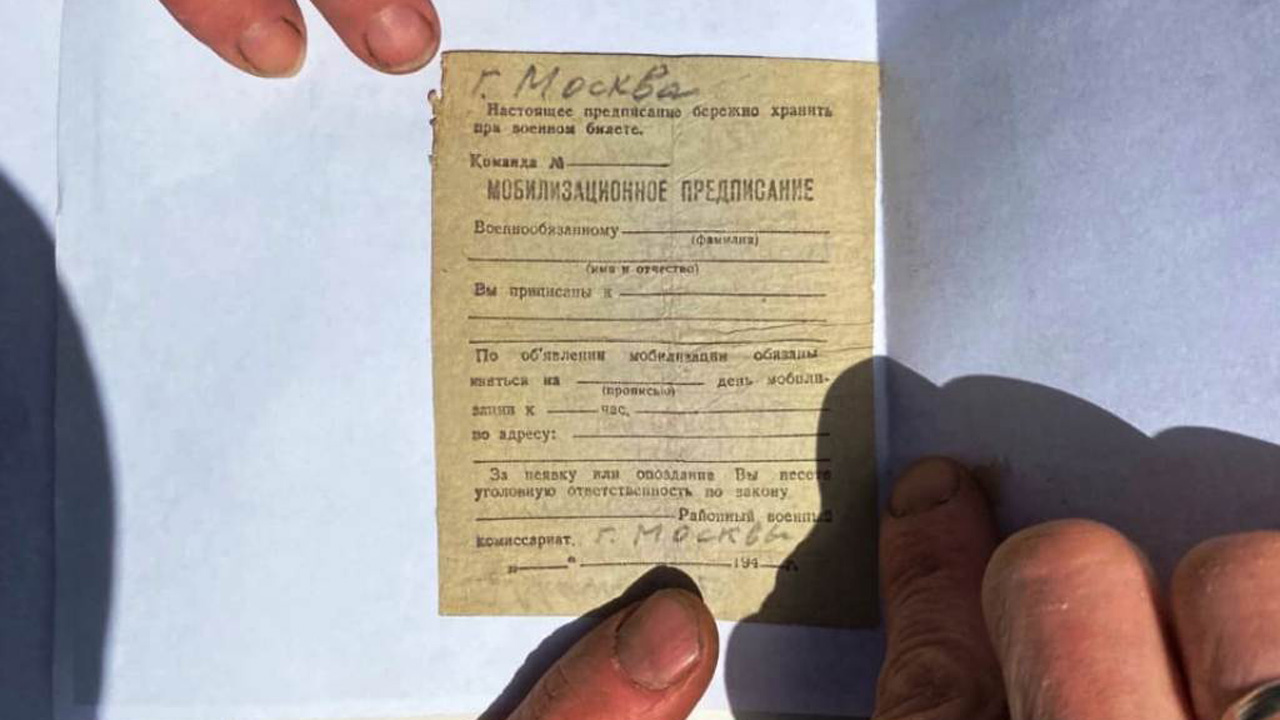 г. Москва
Настоящее предписание бережно хранить
при военном билете.
Команда №
МОБИЛИЗАЦИОННОЕ ПРЕДПИСАНИЕ
Военнообязанному
(фамилия)
(имя и отчество)
Вы приписаны к
По об'явлении мобилизации обязаны
явиться на день мобили-
(прописью)
зации к час.
по адресу:
За неявку или опоздание Вы несете
уголовную ответственность по закону
Районный военный
комиссариат. г. Москвы
„ “ 194 г.